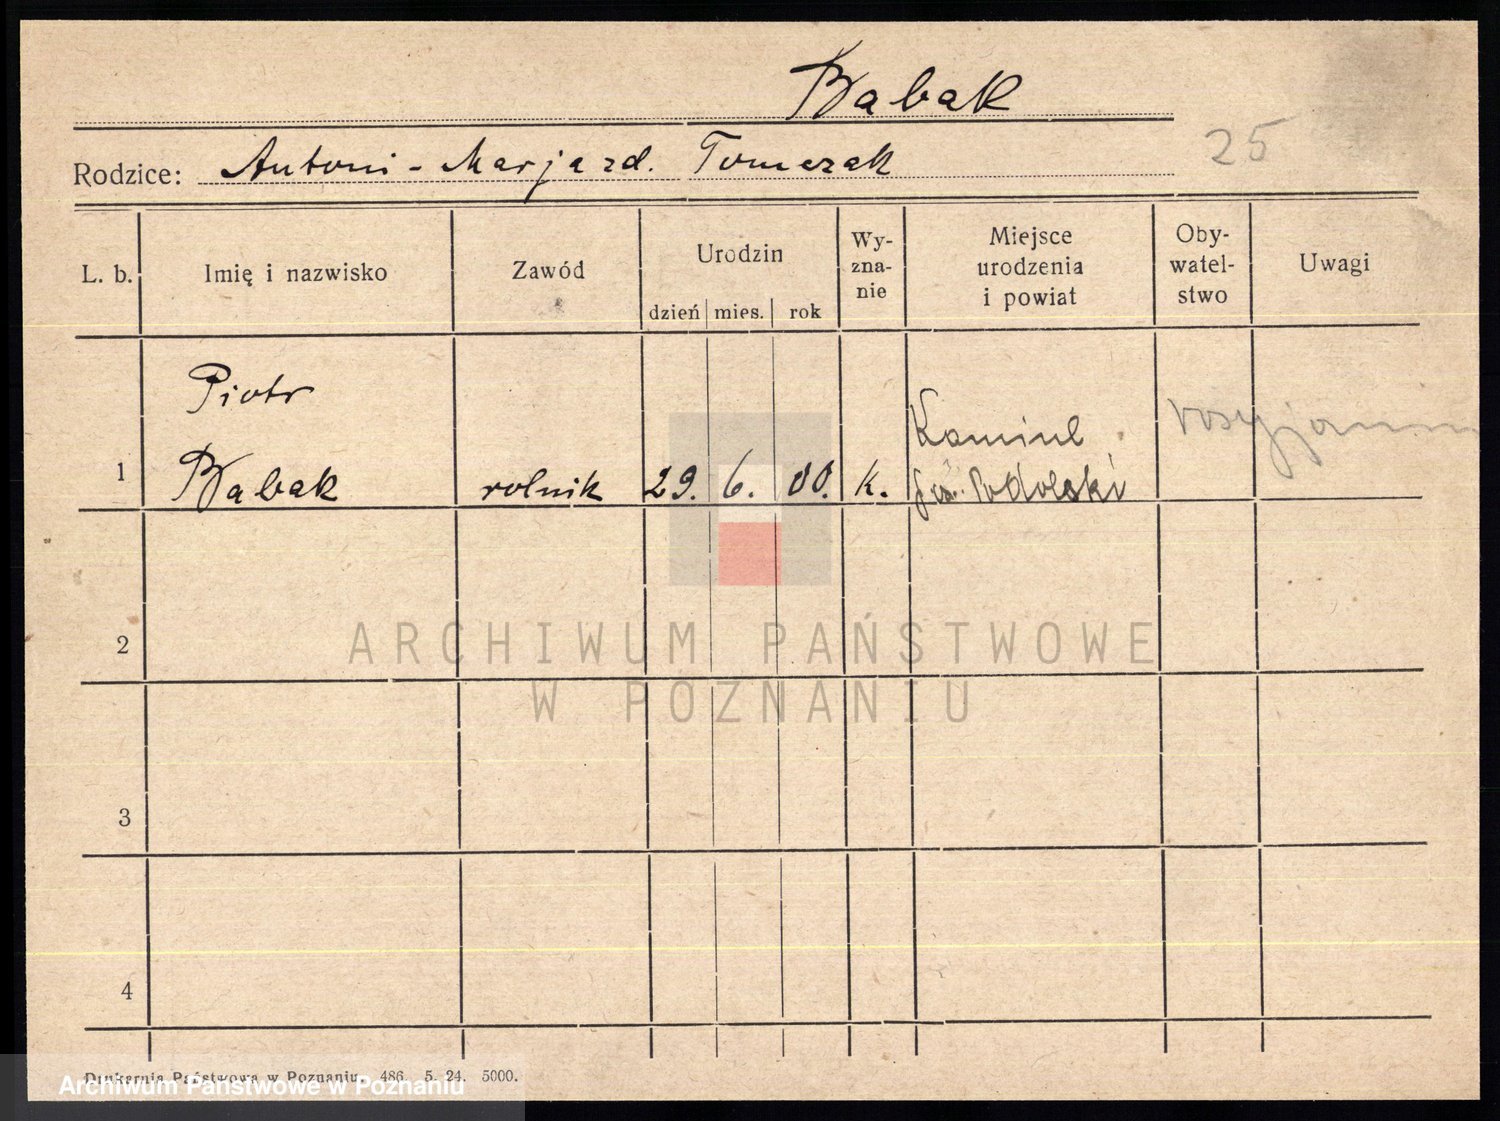 Babak
25
Rodzice: Antoni - Marja zd. Tomczak
L. b. Imię i nazwisko Zawód Urodzin dzień mies. rok Wy-zna-nie Miejsce urodzenia i powiat Oby-watel-stwo Uwagi
Piotr
Kamine
rosyjanin
1 Babak rolnik 29. 6. 00. k. Podolski
2
ARCHIWUM PAŃSTWOWE
W POZNANIU
3
4
Drukarnia Państwowa w Poznaniu. 486. 5. 24. 5000.
Archiwum Państwowe w Poznaniu